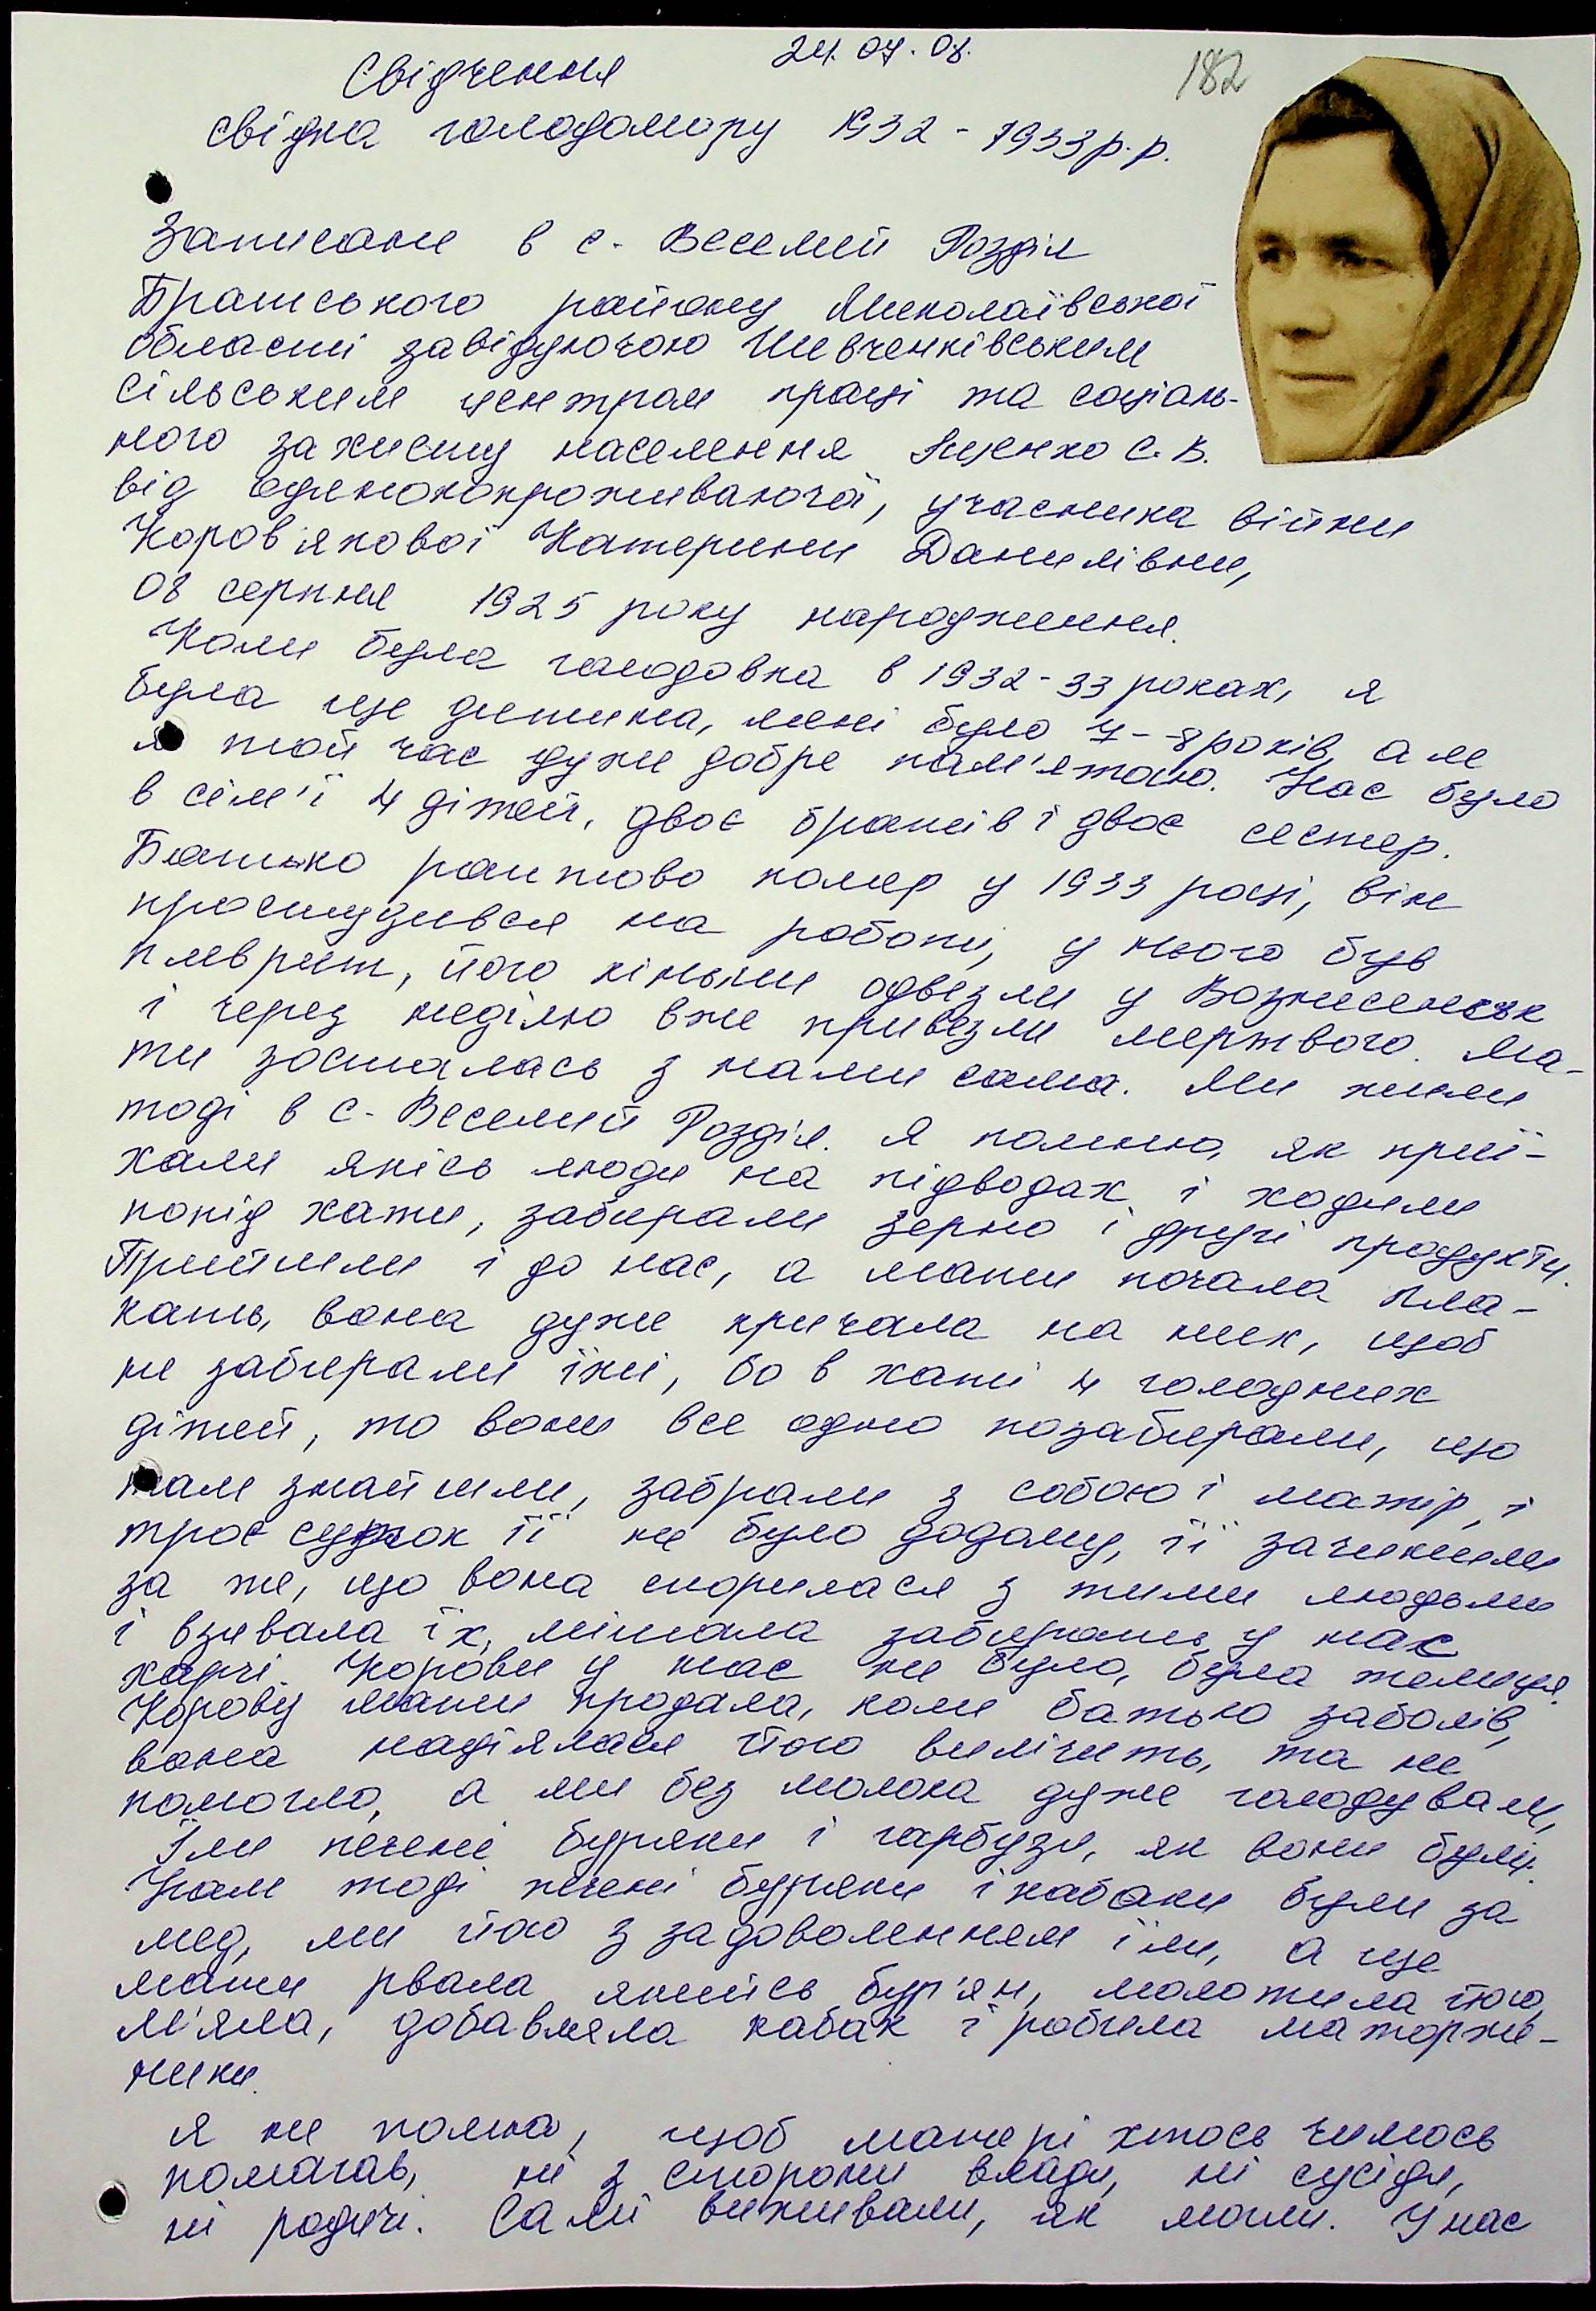 24.07.08.
182
Свідчення
свідка голодомору 1932 - 1933 р.р.
Записане в с. Веселий Розділ
Братського району Миколаївської
області завідуючою Шевченківським
сільським центром праці та соціаль-
ного захисту населення Яценко С.В.
від одинокопроживаючої, учасника війни
Коров'якової Катерини Данилівни,
08 серпня 1925 року народження.
Коли була голодовка в 1932-33 роках, я
була ще дитина, мені було 7-8 років, але
я той час дуже добре пам'ятаю. Нас було
в сім'ї 4 дітей, двоє братів і двоє сестер.
Батько раптово помер у 1933 році, він
простудився на роботі, у нього був
плеврит, його кіньми одвезли у Вознесенськ
і через неділю вже привезли мертвого. Ма-
ти зосталась з нами сама. Ми жили
тоді в с. Веселий Розділ. Я помню, як приї-
хали якісь люди на підводах і ходили
попід хати, забирали зерно і другі продукти.
Прийшли і до нас, а мати почала пла-
кать, вона дуже кричала на них, щоб
не забирали їжі, бо в хаті 4 голодних
дітей, то вони все одно позабирали, що
там знайшли, забрали з собою і матір, і
троє суток її не було додому, її зачинили
за те, що вона спорилася з тими людьми
і взивала їх, мішала забирать у нас
харчі. Корови у нас не було, була телиця.
Корову мати продала, коли батько заболів,
вона надіялася його вилічить, та не
помогло, а ми без молока дуже голодували,
Їли печені буряки і гарбузи, як вони були.
Нам тоді печені буряки і кабаки були за
мед, ми його з задоволенням їли, а ще
мати рвала якийсь бур'ян, молотила його,
м'яла, добавляла кабак і робила маторже-
ники.
Я не помню, щоб матері хтось чимось
помагав, ні з сторони влади, ні сусіди,
ні родичі. Самі виживали, як могли. У нас